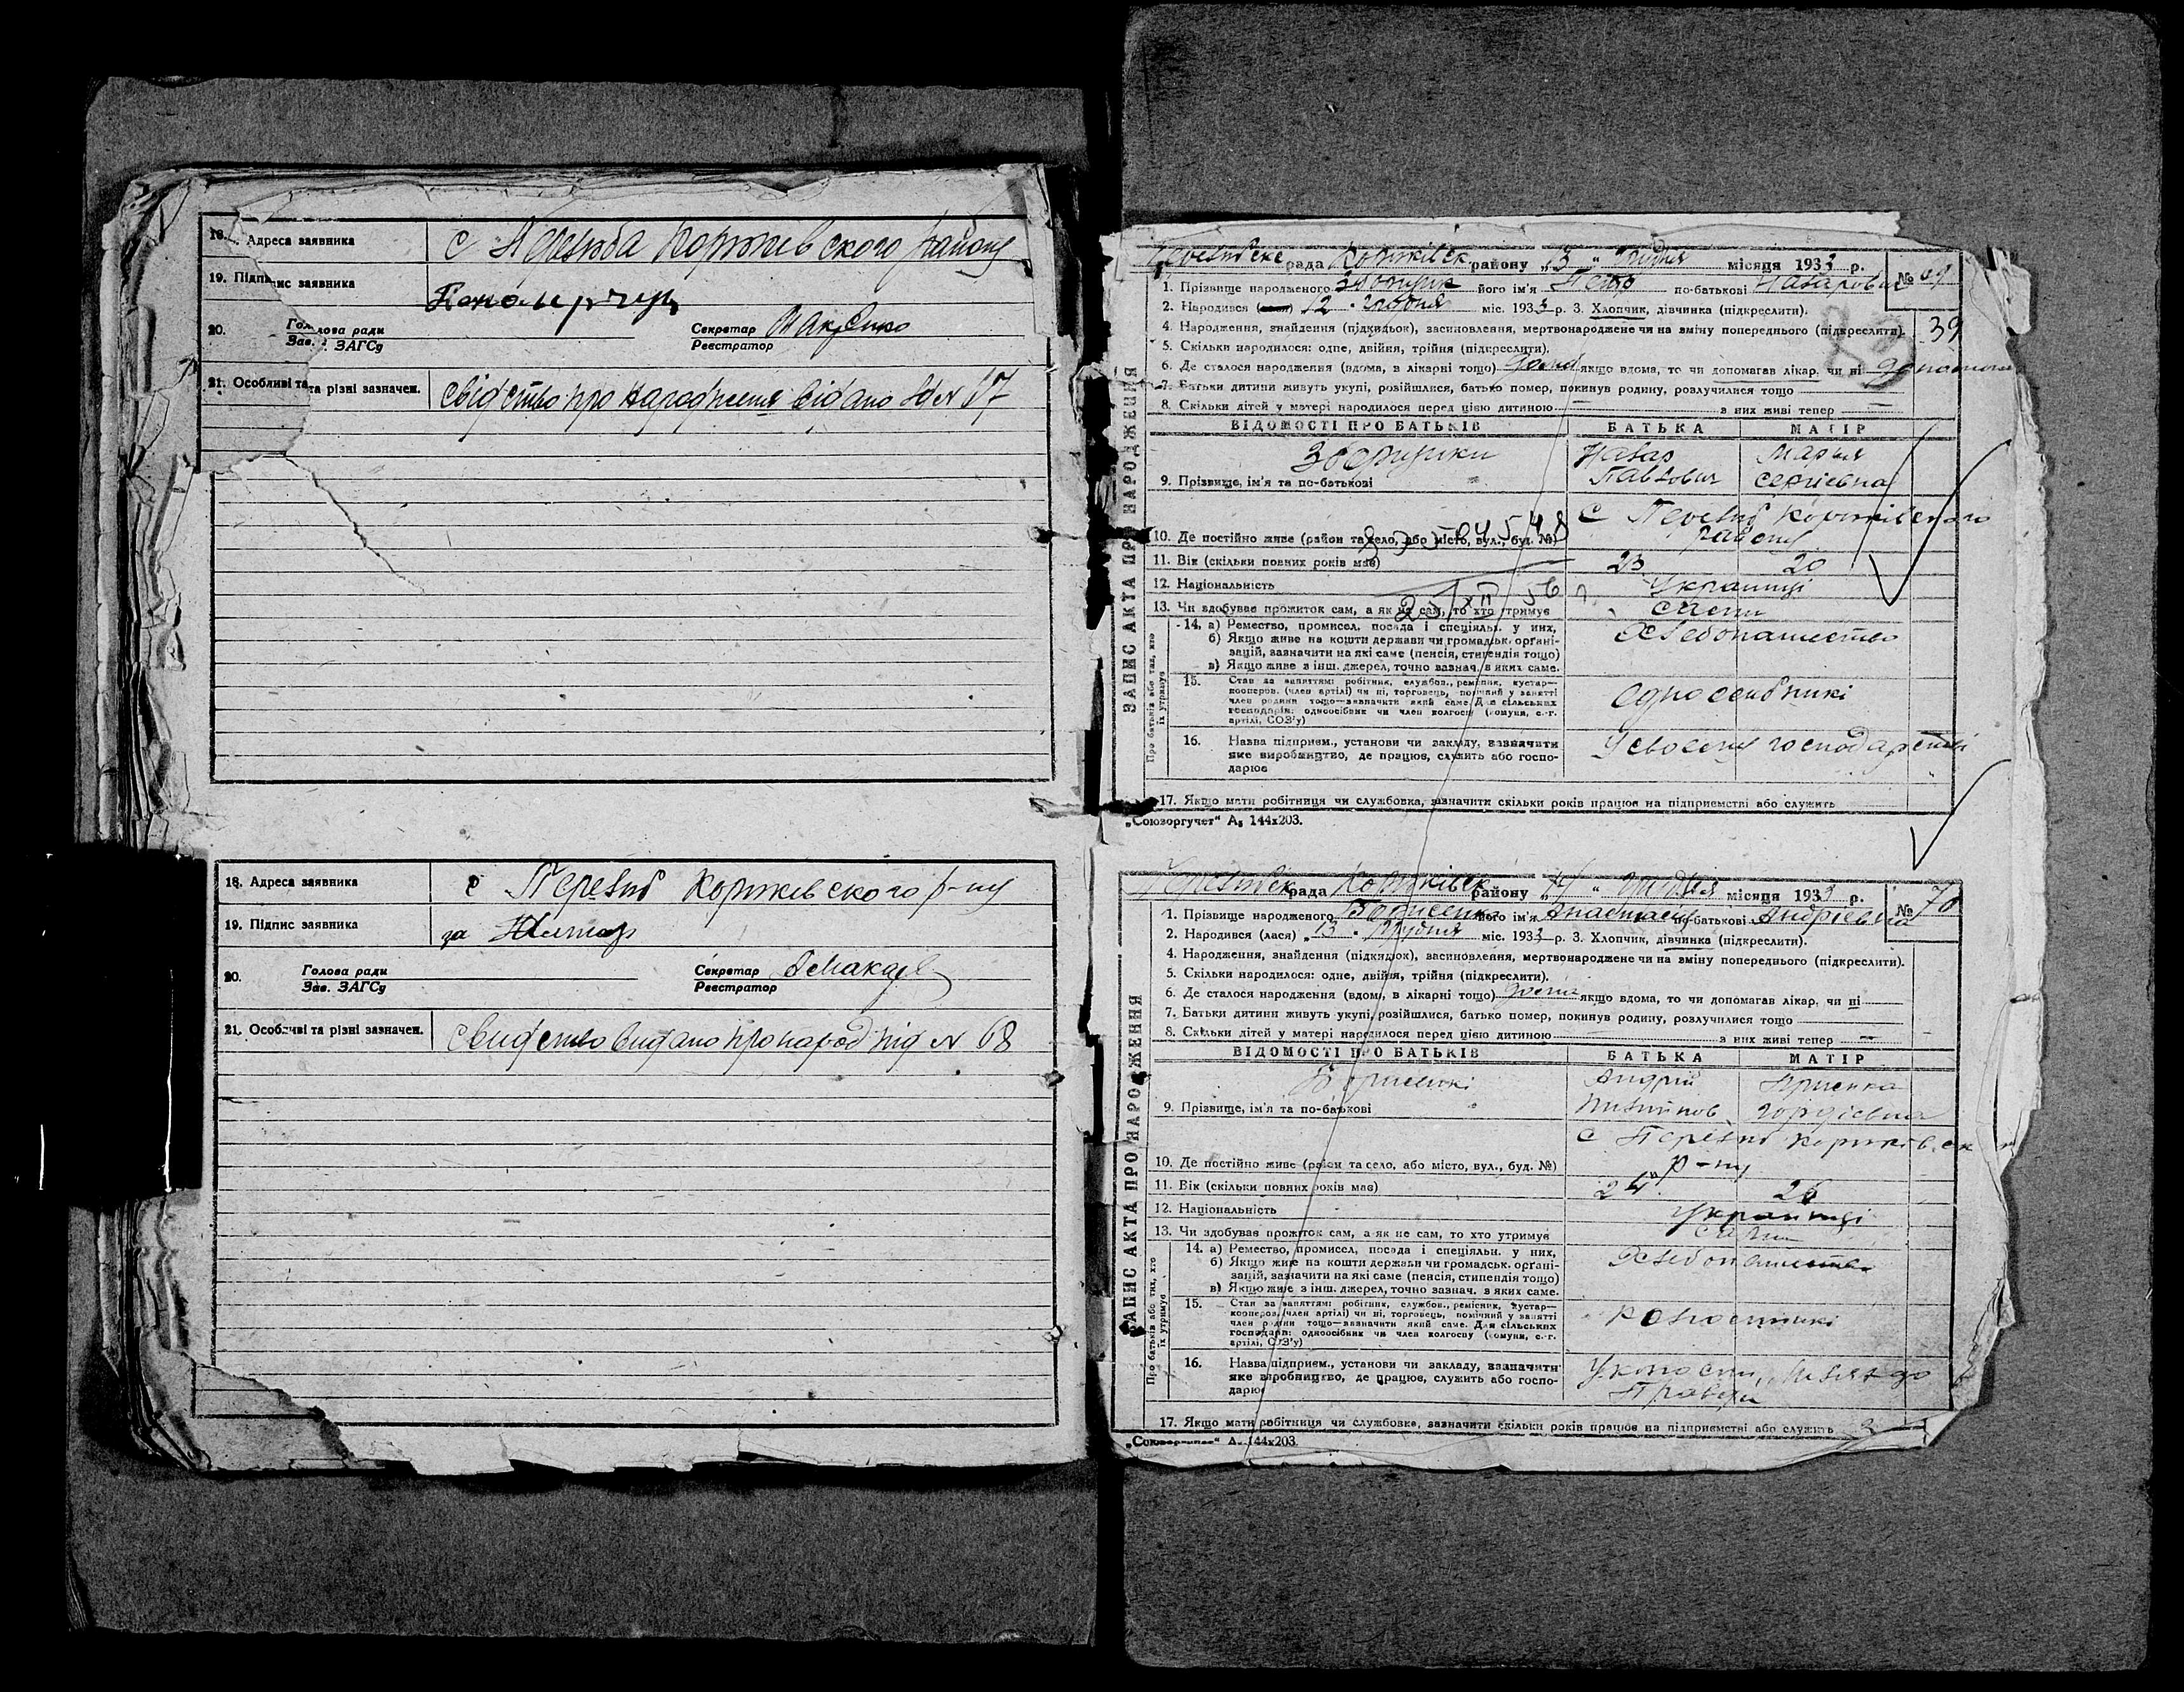 18. Адреса заявника
19. Підпис заявника
20. Голова ради Секретар
Зав. ЗАГСу Реєстратор
21. Особливі та різні зазначен. свідство про народження відано
18. Адреса заявника с Коржевского р-ну
19. Підпис заявника за
20. Голова ради Секретар
Зав. ЗАГСу Реєстратор
21. Особливі та різні зазначен. свидство видано про народ під № 68
ЗАПИС АКТА ПРО НАРОДЖЕННЯ
рада Коржківск району „13 " грудня місяця 1933 р. №
1. Прізвище народженого його ім'я Петро по-батькові Назарович
2. Народився 12 " грудня міс. 1933 р. 3. Хлопчик, дівчинка (підкреслити).
4. Народження, знайдення (підкидьок), засиновлення, мертвонароджене чи на зміну попереднього (підкреслити). 39
5. Скільки народилося: одне, двійня, трійня (підкреслити).
6. Де сталося народження (вдома, в лікарні тощо) дома якщо вдома, то чи допомагав лікар, чи ні
7. Батьки дитини живуть укупі, розійшлися, батько помер, покинув родину, розлучилися тощо
8. Скільки дітей у матері народилося перед цією дитиною — з них живі тепер —
ВІДОМОСТІ ПРО БАТЬКІВ БАТЬКА МАТІР
Назар Мария
9. Прізвище, ім'я та по-батькові Павлович Сергіевна
10. Де постійно живе (район та село, або місто, вул., буд. №) району
11. Вік (скільки повних років має) 23 20
12. Національність Українці
13. Чи здобуває прожиток сам, а як не сам, то хто утримує сами
Про батьків або тих, хто їх утримує
14. а) Ремество, промисел, посада і спеціяльн. у них, Хлебопашество
б) Якщо живе на кошти держави чи громадськ. органі-
зацій, зазначити на які саме (пенсія, стипендія тощо)
в) Якщо живе з інш. джерел, точно зазнач. в яких саме.
15. Стан за заняттями робітник, службов., ремісник, кустар— Одноосібникі
кооперов. (член артілі) чи ні, торговець, помічний у занятті
член родини тощо—зазначити який саме. Для сільських
господарів: одноосібник чи член колгоспу (комуни, с.-г.
артілі, СОЗ'у)
16. Назва підприєм., установи чи закладу, зазначити У своєму господарстві
яке виробництво, де працює, служить або госпо-
дарює
17. Якщо мати робітниця чи службовка, зазначити скільки років працює на підприємстві або служить
„Союзоргучет" А₅ 144х203.
ЗАПИС АКТА ПРО НАРОДЖЕННЯ
рада Коржківск району „14 " грудня місяця 1933 р. № 70
1. Прізвище народженого Борисенко його ім'я Анастасия по-батькові Андріевна
2. Народився (лася) „13 " грудня міс. 1933 р. 3. Хлопчик, дівчинка (підкреслити).
4. Народження, знайдення (підкидьок), засиновлення, мертвонароджене чи на зміну попереднього (підкреслити).
5. Скільки народилося: одне, двійня, трійня (підкреслити).
6. Де сталося народження (вдома, в лікарні тощо) дома якщо вдома, то чи допомагав лікар, чи ні
7. Батьки дитини живуть укупі, розійшлися, батько помер, покинув родину, розлучилися тощо
8. Скільки дітей у матері народилося перед цією дитиною — з них живі тепер —
ВІДОМОСТІ ПРО БАТЬКІВ БАТЬКА МАТІР
Борисенкі Андрій
9. Прізвище, ім'я та по-батькові Гордіевна
10. Де постійно живе (район та село, або місто, вул., буд. №) р-ну
11. Вік (скільки повних років має) 24 26
12. Національність Українці
13. Чи здобуває прожиток сам, а як не сам, то хто утримує сами
Про батьків або тих, хто їх утримує
14. а) Ремество, промисел, посада і спеціяльн. у них, Хлебопашество
б) Якщо живе на кошти держави чи громадськ. органі-
зацій, зазначити на які саме (пенсія, стипендія тощо)
в) Якщо живе з інш. джерел, точно зазнач. в яких саме.
15. Стан за заняттями робітник, службов., ремісник, кустар— Колгоспникі
кооперов. (член артілі) чи ні, торговець, помічний у занятті
член родини тощо—зазначити який саме. Для сільських
господарів: одноосібник чи член колгоспу (комуни, с.-г.
артілі, СОЗ'у)
16. Назва підприєм., установи чи закладу, зазначити
яке виробництво, де працює, служить або госпо-
дарює
17. Якщо мати робітниця чи службовка, зазначити скільки років працює на підприємстві або служить 3
„Союзоргучет" А₅ 144х203.